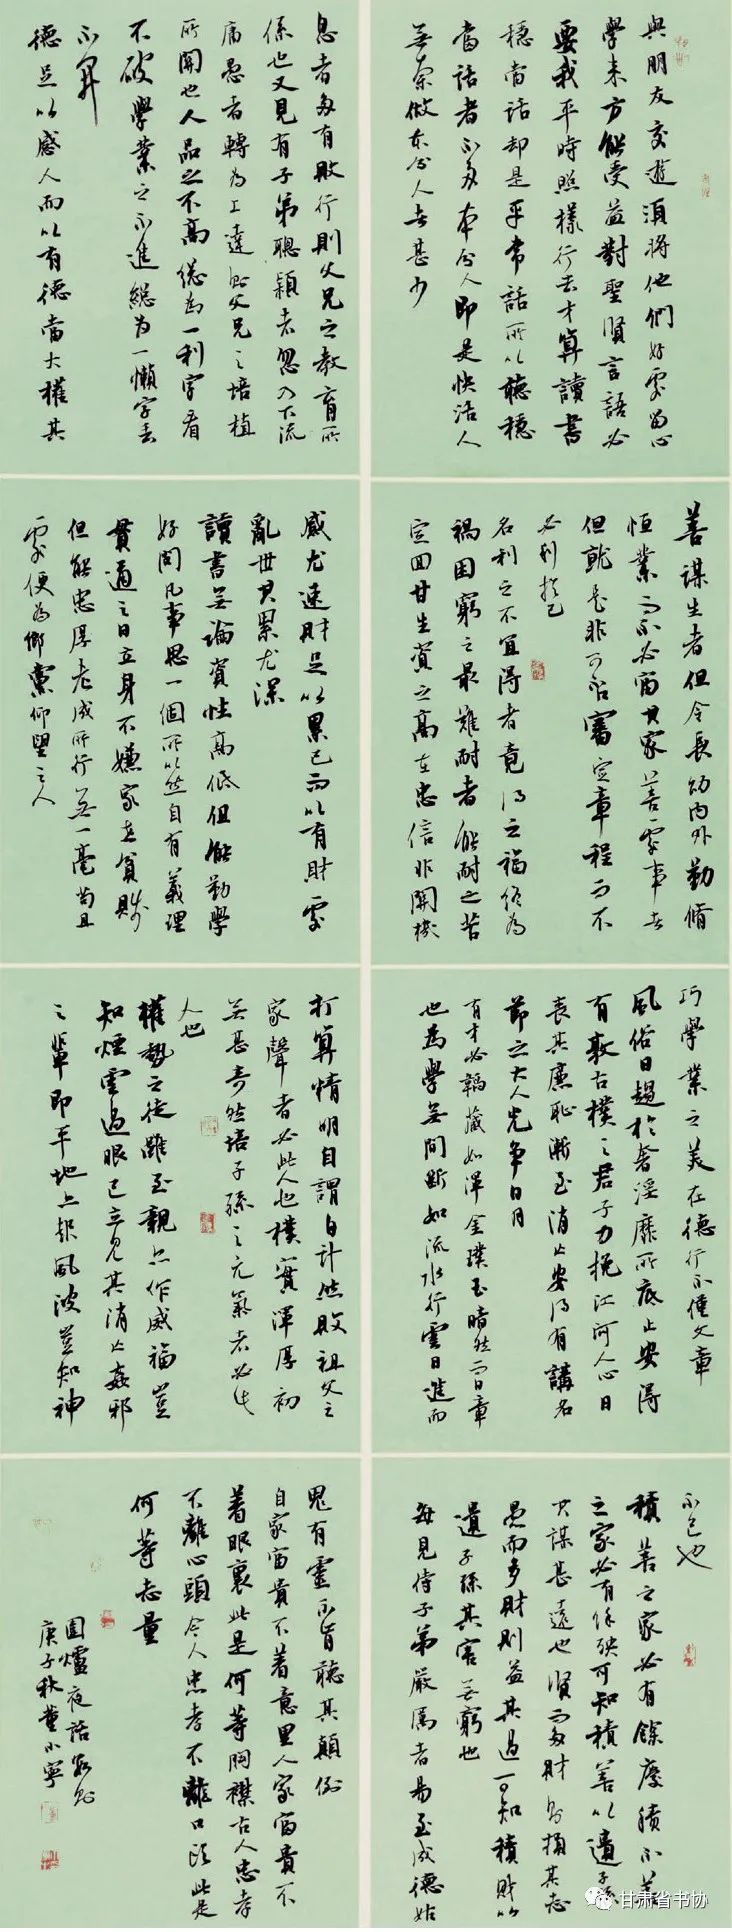 與朋友交遊須將他們好處留心
學來方能受益對聖賢言語必
要我平時照樣行去才算讀書
穩當話却是平常話所以聽穩
當話者不多本分人即是快活人
無奈做本分人者甚少
善謀生者但令長幼內外勤脩
恒業而不必富其家善處事者
但就是非可否審定章程而不
必利於己
名利之不宜得者竟得之福終為
禍困窮之最難耐者能耐之苦
定回甘生資之高在忠信非關機
巧學業之美在德行不僅文章
風俗日趨於奢淫靡所底止安得
有敦古樸之君子力挽江河人心日
喪其廉恥漸至消亡安得有講名
節之大人光爭日月
有才必韜藏如渾金璞玉暗然而日章
也為學無間斷如流水行雲日進而
不已也
積善之家必有餘慶積不善
之家必有餘殃可知積善以遺子孫
其謀甚遠也賢而多財則損其志
愚而多財則益其過可知積財以
遺子孫其害無窮也
每見待子弟嚴厲者易至成德姑
息者多有敗行則父兄之教育所
係也又見有子弟聰穎者忽入下流
庸愚者轉為上達則父兄之培植
所關也人品之不高總為一利字看
不破學業之不進總為一懶字丟
不開
德足以感人而以有德當大權其
感尤速財足以累己而以有財處
亂世其累尤深
讀書無論資性高低但能勤學
好問凡事思一個所以然自有義理
貫通之日立身不嫌家世貧賤
但能忠厚老成所行無一毫苟且
處便為鄉黨仰望之人
打算精明自謂得計然敗祖父之
家聲者必此人也樸實渾厚初
無甚奇然培子孫之元氣者必此
人也
權勢之徒雖至親亦作威福豈
知煙雲過眼已立見其消亡姦邪
之輩即平地亦起風波豈知神
鬼有靈不肯聽其顛倒
自家富貴不著意裏人家富貴不
著眼裏此是何等胸襟古人忠孝
不離心頭今人忠孝不離口頭此是
何等志量
圍爐夜話數則
庚子秋董小寧
甘肃省书协